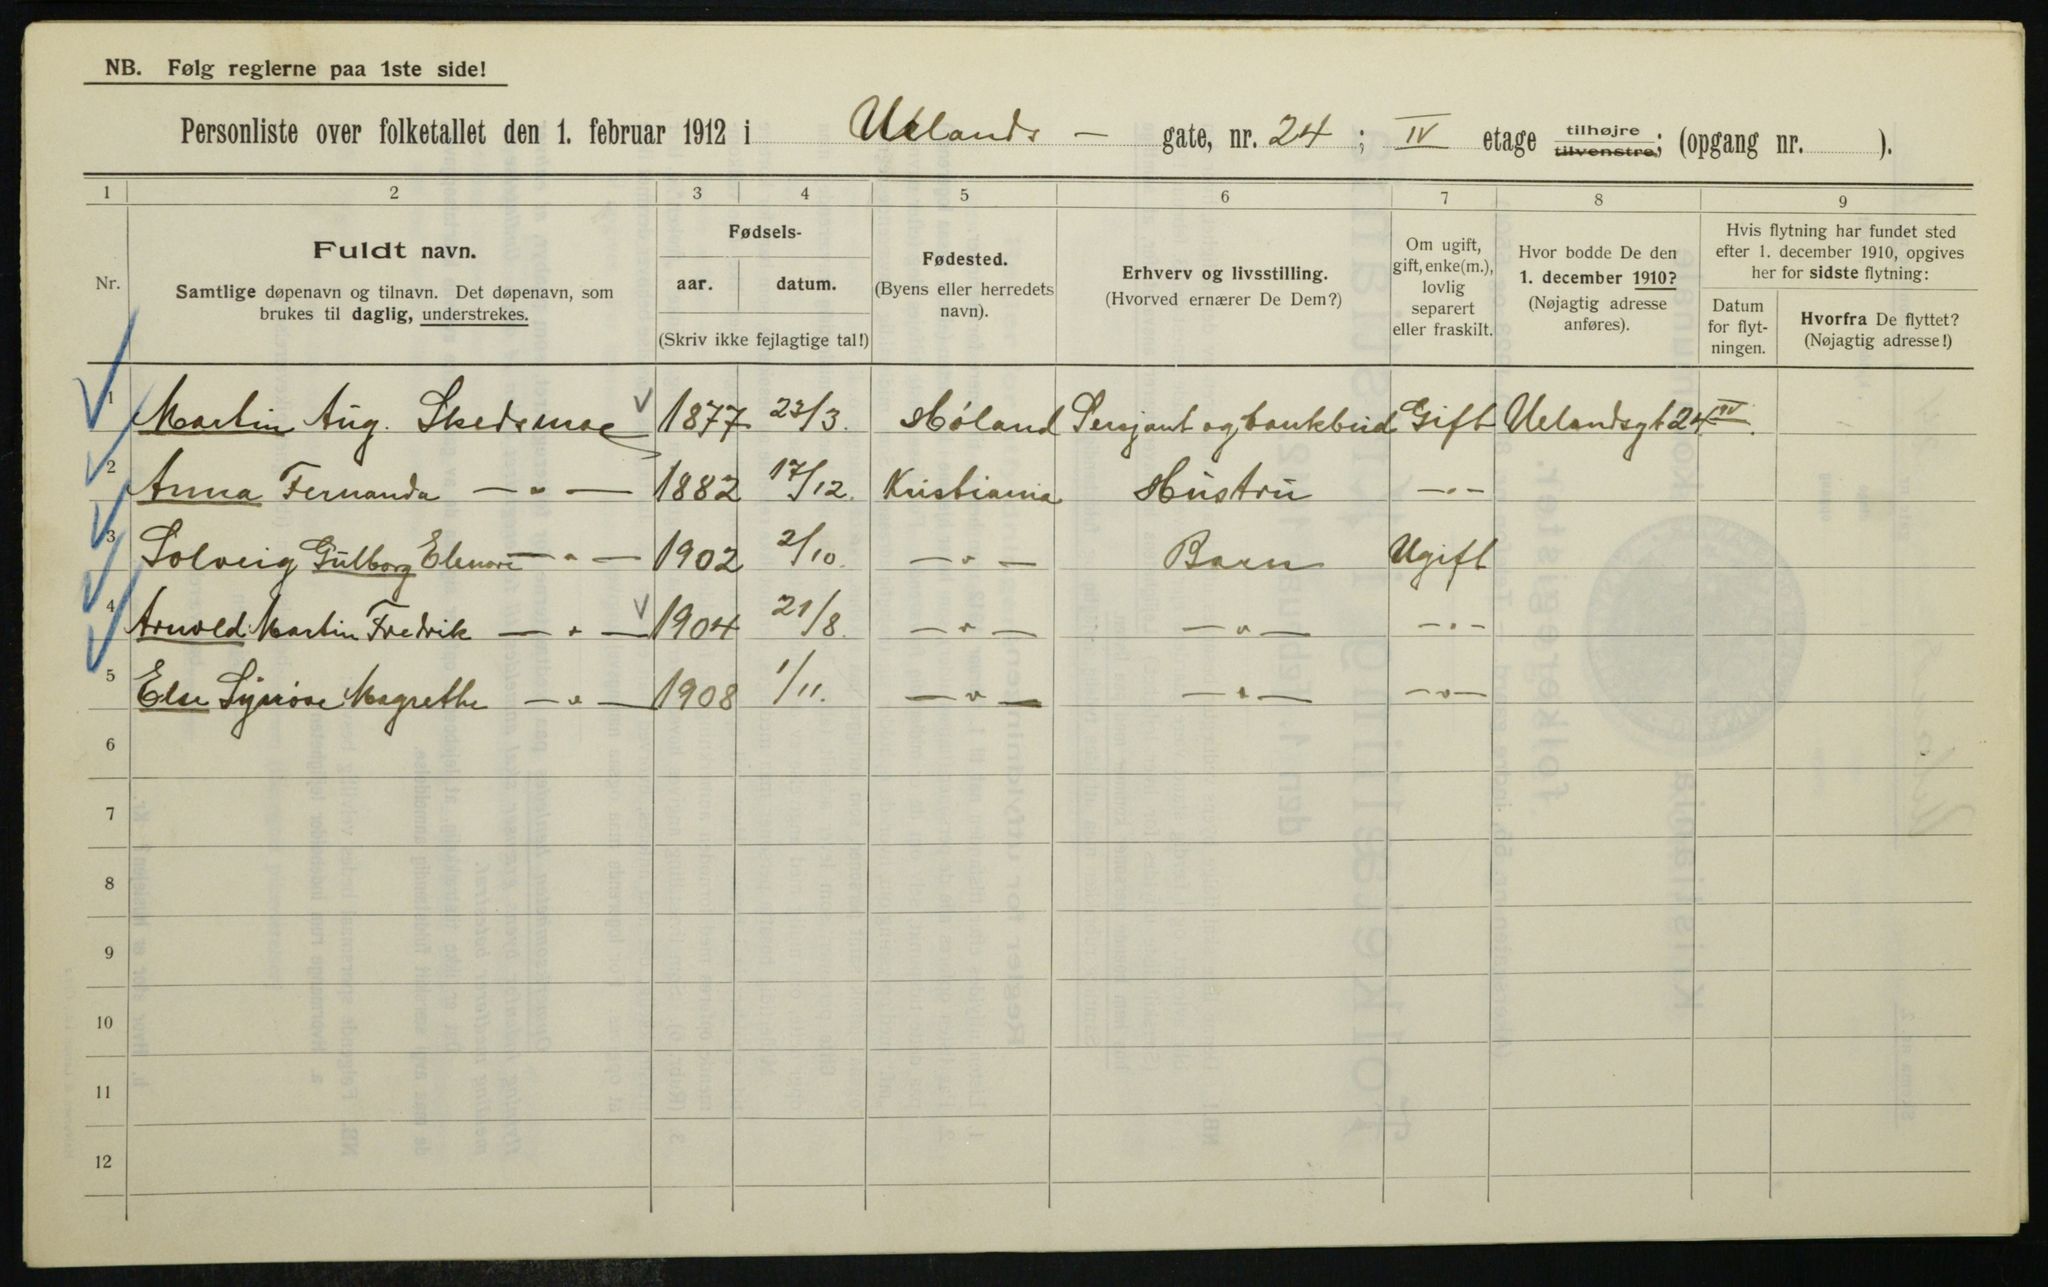 NB. Følg reglerne paa 1ste side!
Personliste over folketallet den 1. februar 1912 i Uelands - gate, nr. 24 ; IV etage tilhøjre tilvenstre; (opgang nr. ).
1 2 3 4 5 6 7 8 9
Nr.
Fuldt navn.
Samtlige døpenavn og tilnavn. Det døpenavn, som
brukes til daglig, understrekes.
Fødsels-
aar. datum.
(Skriv ikke fejlagtige tal!)
Fødested.
(Byens eller herredets
navn).
Erhverv og livsstilling.
(Hvorved ernærer De Dem?)
Om ugift,
gift, enke(m.),
lovlig
separert
eller fraskilt.
Hvor bodde De den
1. december 1910?
(Nøjagtig adresse
anføres).
Hvis flytning har fundet sted
efter 1. december 1910, opgives
her for sidste flytning:
Datum
for flyt-
ningen.
Hvorfra De flyttet?
(Nøjagtig adresse!)
1 Martin Aug. Skedsmo 1877 23/3. Høland Sersjant og bankbud Gift Uelandsgt 24 IV.
2 Anna Fernanda — " — 1882 17/12. Kristiania Hustru — " —
3 Solveig Gulborg Elenore — " — 1902 2/10. — " — Barn Ugift
4 Arnold Martin Fredrik — " — 1904 21/8. — " — — " — — " —
5 Else Synøve Magrethe — " — 1908 1/11. — " — — " — — " —
6
7
8
9
10
11
12